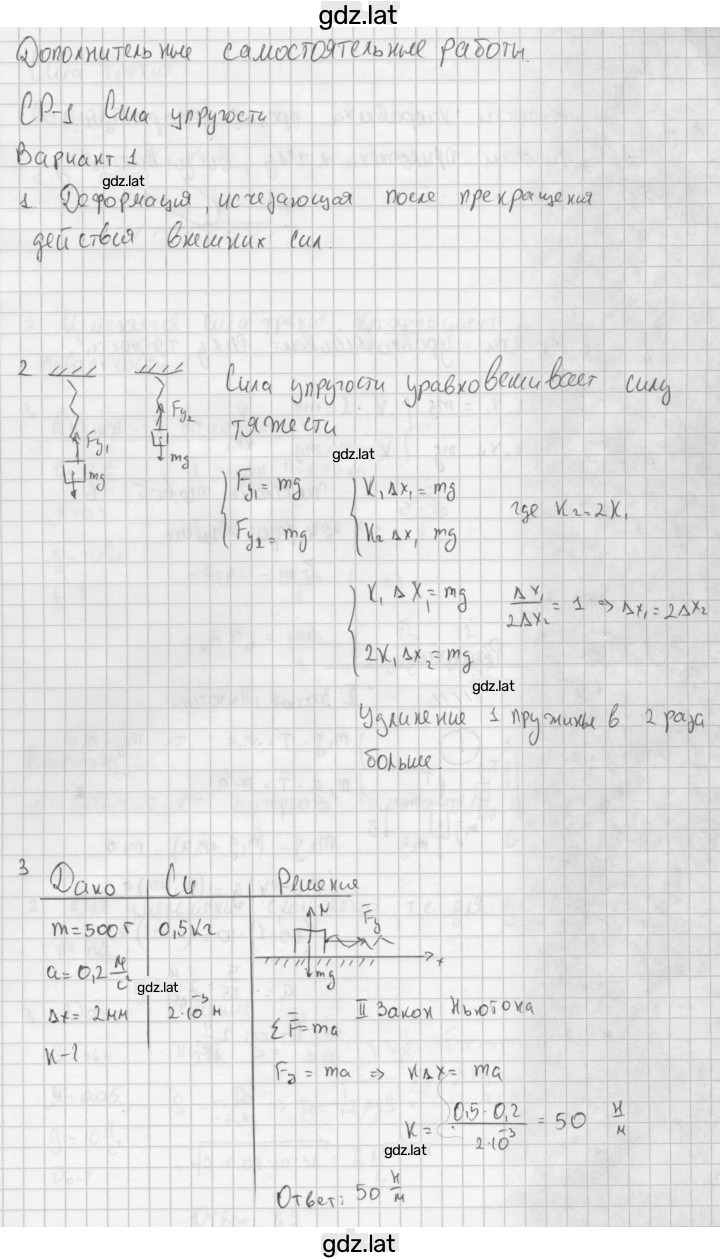 gdz.lat
Дополнительные самостоятельные работы.
СР-1 Сила упругости
Вариант 1
gdz.lat
1 Деформация, исчезающая после прекращения
действия внешних сил.
2 Fу₁ mg Fу₂ mg
Сила упругости уравновешивает силу
тяжести
gdz.lat
{ Fу₁ = mg { K₁ Δx₁ = mg
Fу₂ = mg K₂ Δx₁ mg где K₂ = 2K₁
{ K₁ ΔX₁ = mg ΔX₁/2ΔX₂ = 1 ⇒ Δx₁ = 2Δx₂
2K₁ Δx₂ = mg
gdz.lat
Удлинение 1 пружины в 2 раза
больше.
3 Дано Си Решение
m = 500 г 0,5 кг N Fу x mg
a = 0,2 м/с²
gdz.lat
Δx = 2 мм 2·10⁻³ м
K-?
ΣF = ma II Закон Ньютона
Fу = ma ⇒ KΔX = ma
K = 0,5·0,2/2·10⁻³ = 50 Н/м
gdz.lat
Ответ: 50 Н/м
gdz.lat